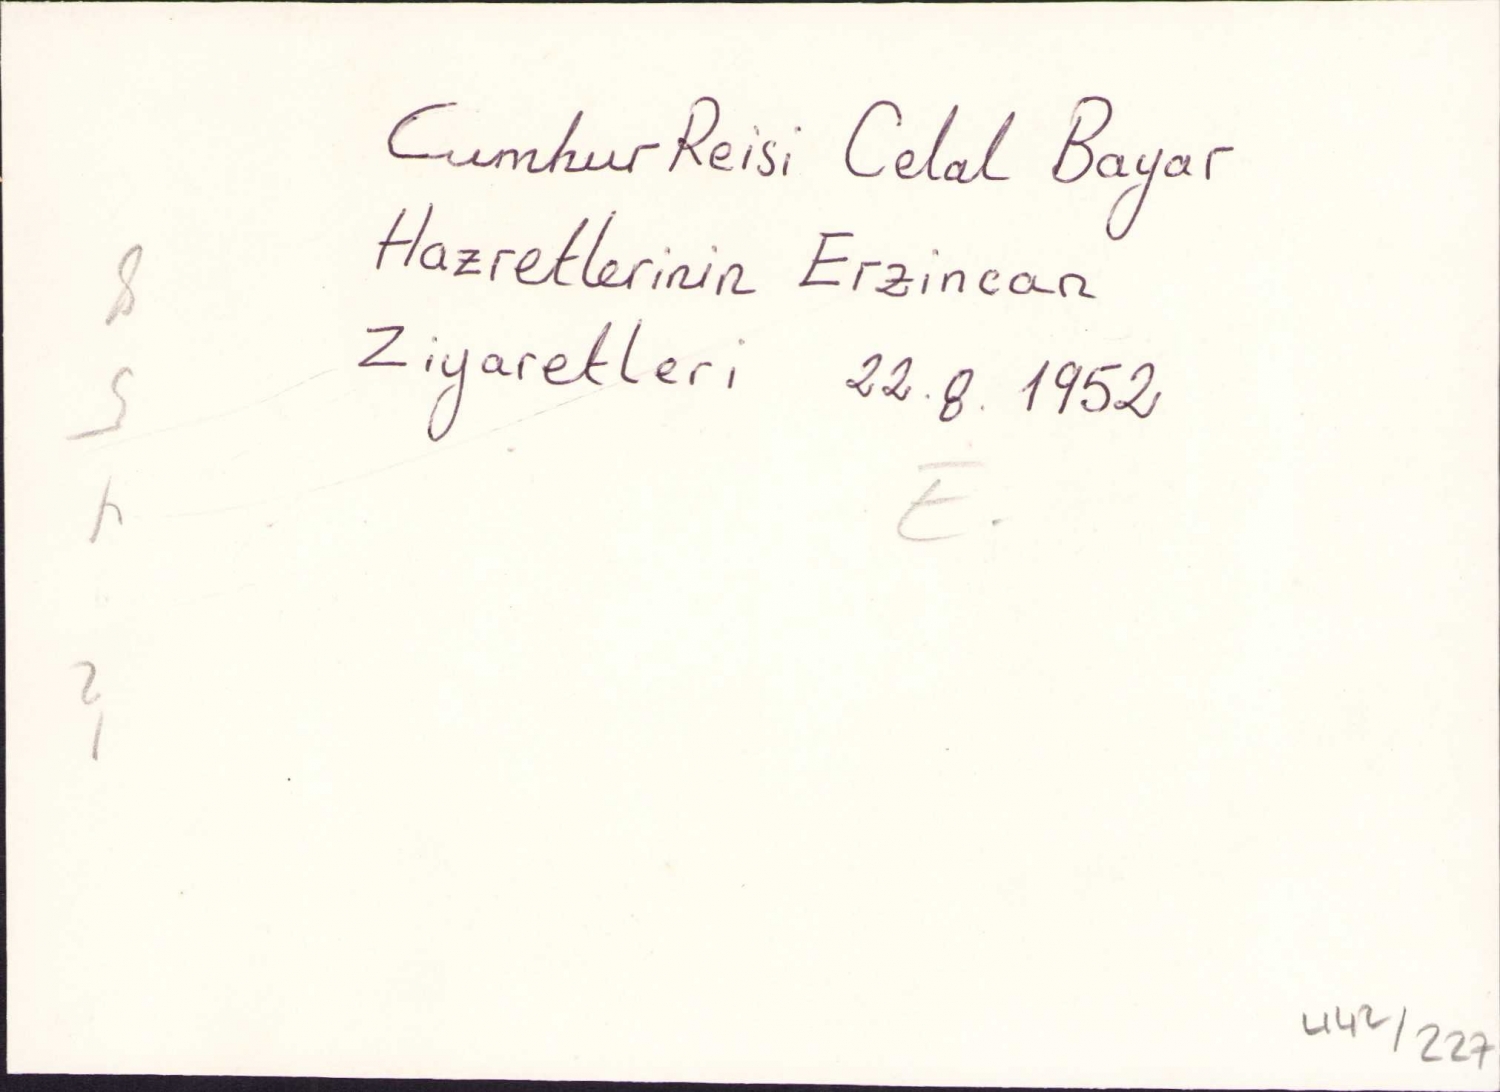 Cumhur Reisi Celal Bayar
Hazretlerinin Erzincan
Ziyaretleri 22.8.1952
E.
442/227